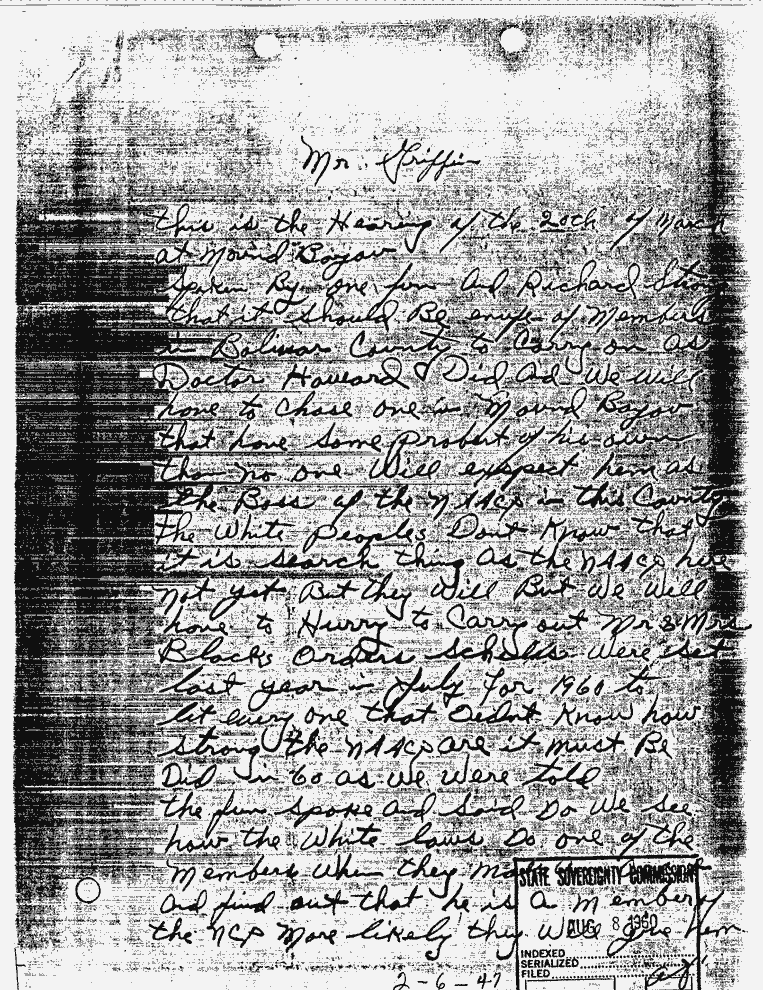 Mr. Griffin
this is the Hearing of the 20th of March
at Mound Bayow
Spoken By one jim And Richard Strong
that it should Be enufe of Members
in Bolivar County to Carry on As
Doctor Howard Did Ad We Will
have to chose one in Mound Bayow
that have some probert of his own
than no one Will exspect hem as
the Boss of the NAACP in this County
the White Peoples Dont Know that
it is search thing As the NAACP here
not yet But they Will But We Will
have to Hurry to Carry out Mr & Mrs
Blacks Orders were set
last year in July for 1960 to
let every one that Dednt Know how
strong the NAACP are it must Be
Did in 60 as we were told
the jim spoke Ad Said Do We see
how the White laws Do one of the
Members When they
Ad find out that he is A Member of
the NCP More likely they Will give hem
STATE SOVEREIGNTY COMMISSION
AUG 8 1960
INDEXED
SERIALIZED
FILED
2-6-47